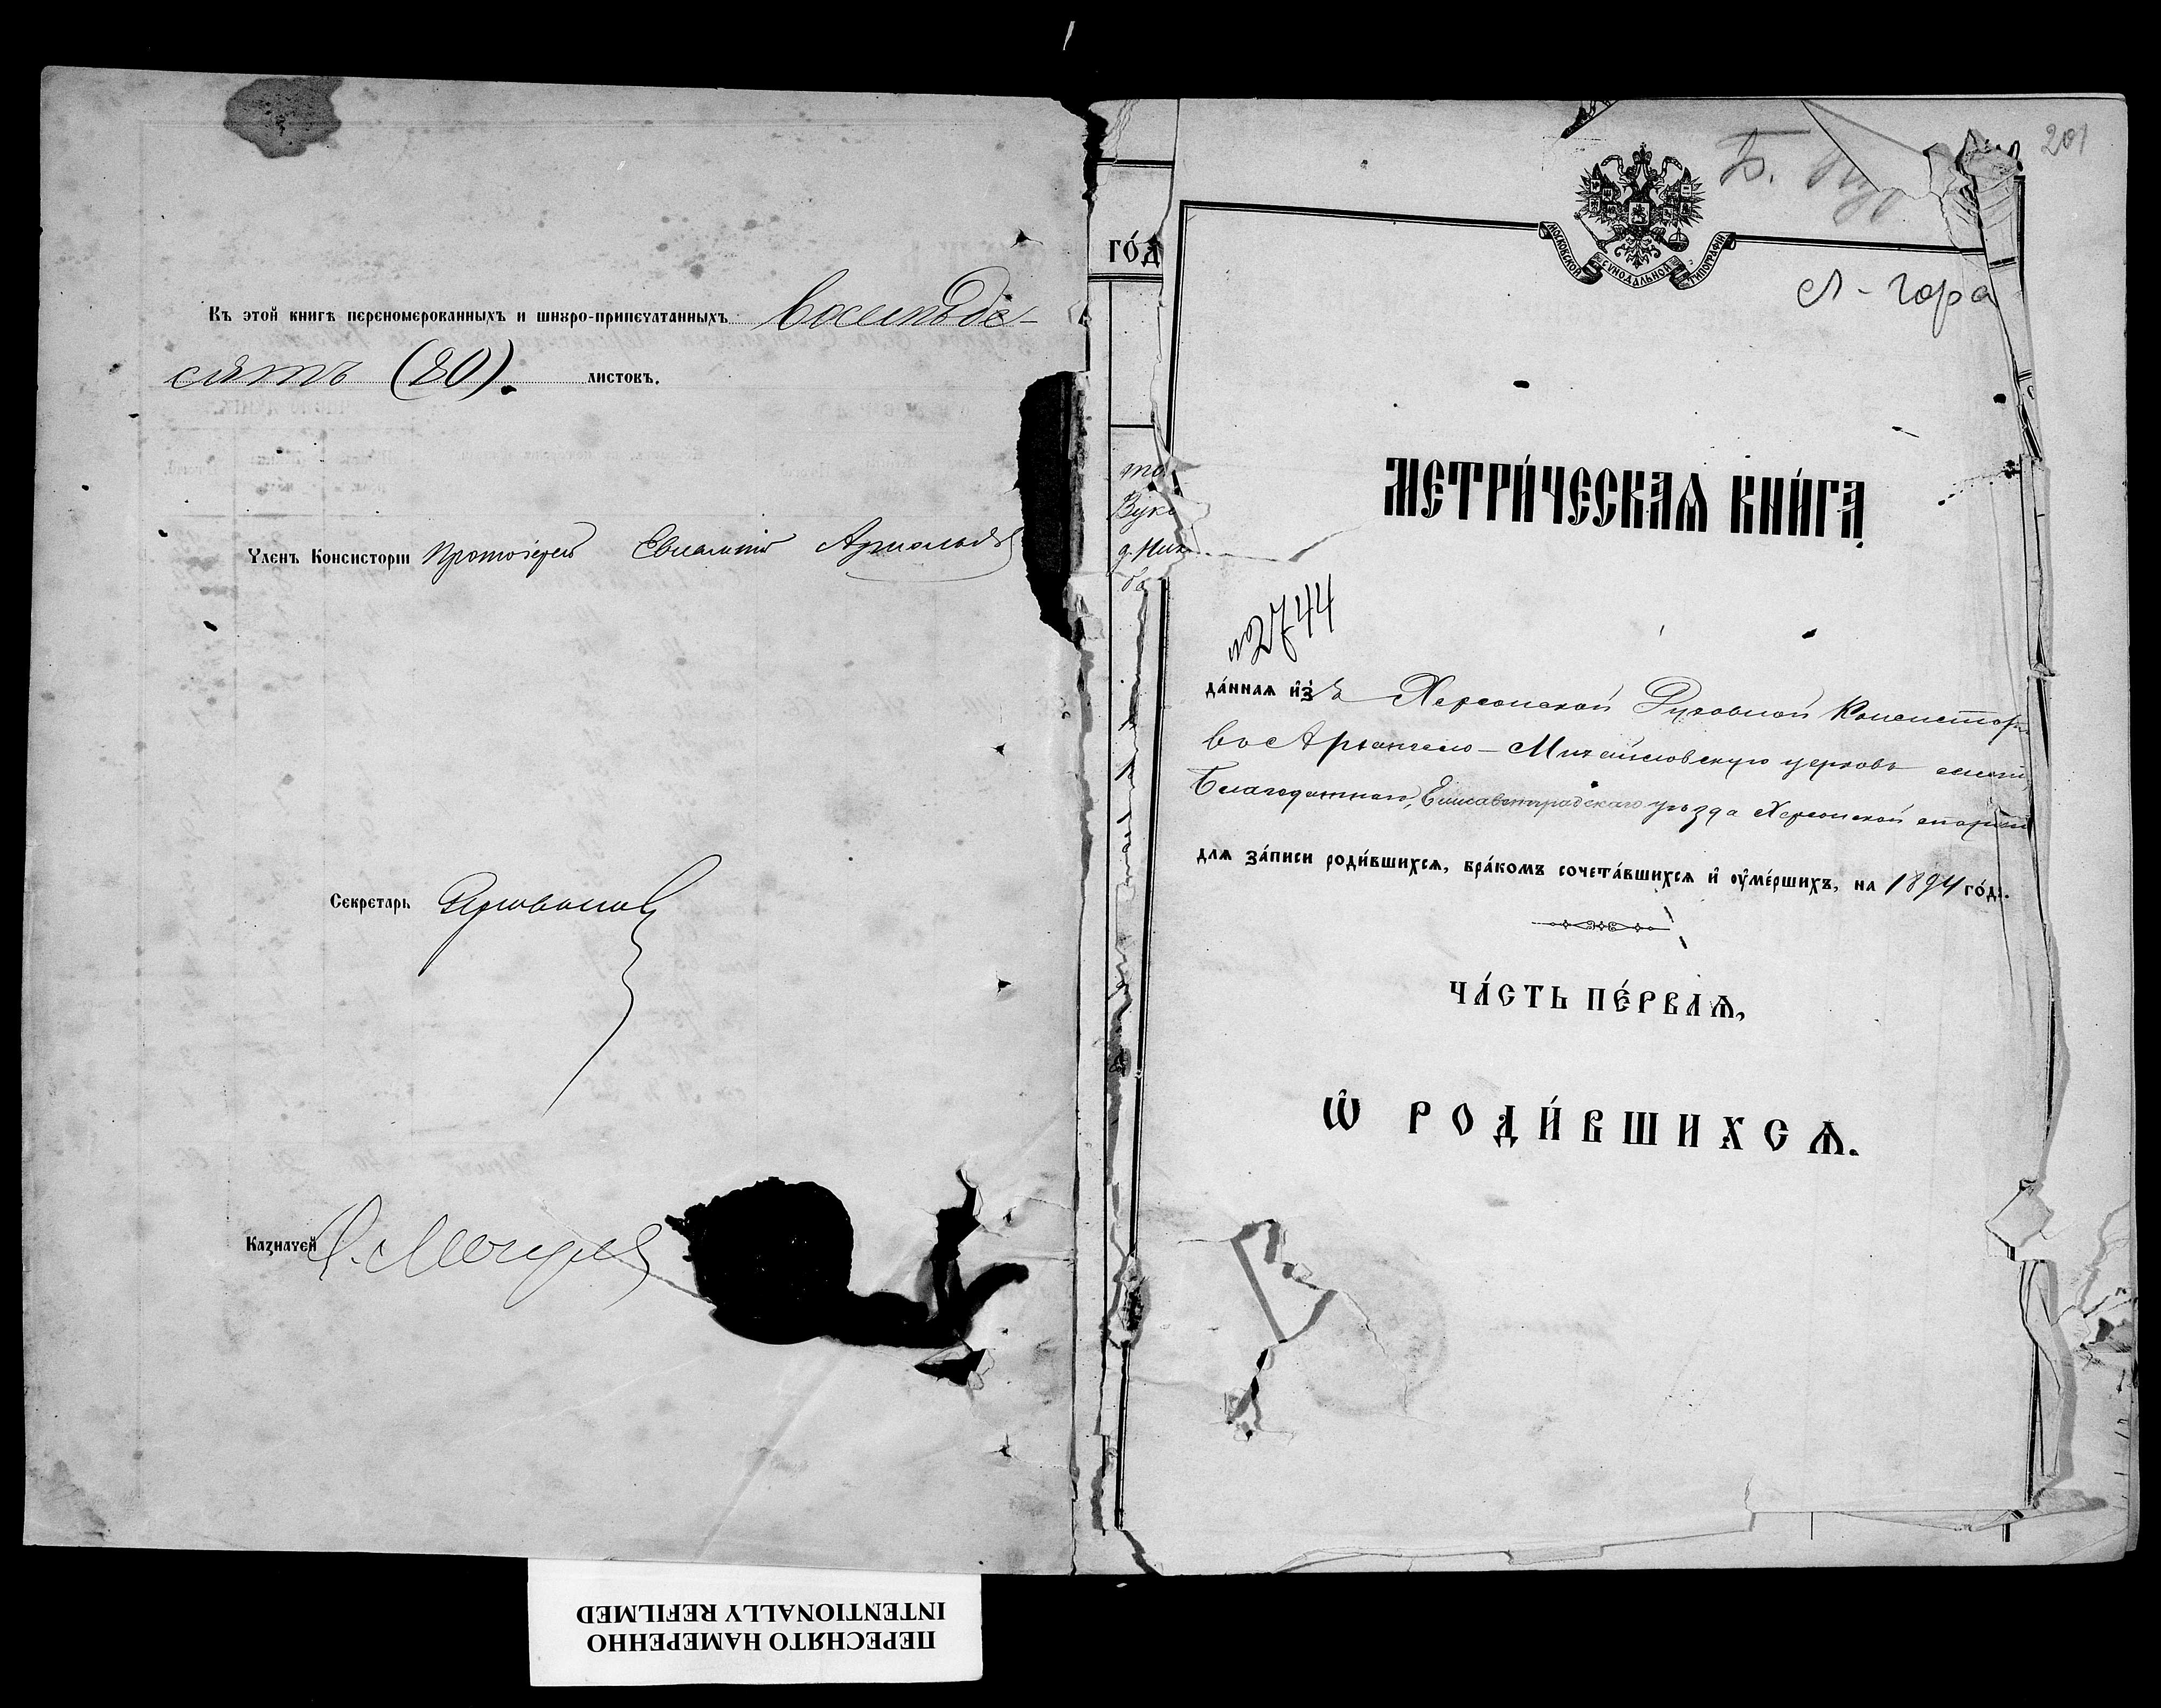 Къ этой книгѣ переномерованныхъ и шнуро-припечатанныхъ восемьде-
сятъ (80). листовъ.
Членъ Консисторіи Протоіерей Евлампій Арнольдовъ
Секретарь
Казначей
ГО́Д
201
МОСКОВСКОЙ СѴНОДАЛЬНОЙ ТИПОГРАФІИ
Л-гора
МЕТРИ́ЧЕСКАѦ КНИ́ГА
№2744
да́ннаѧ и҆зъ Херсонской Духовной Консистор
въ Архангело-Михайловскую церковь
Благодатнаго, Елисаветградскаго уѣзда Херсонской епархіи
длѧ за́писи роди́вшихсѧ, бра́комъ сочета́вшихсѧ и҆ ᲂу҆ме́ршихъ, на 1894 го́дъ.
ЧА́СТЬ ПЕ́РВАѦ,
Ѡ҆ РОДИ́ВШИХСѦ.
ПЕРЕСНЯТО НАМЕРЕННО
INTENTIONALLY REFILMED